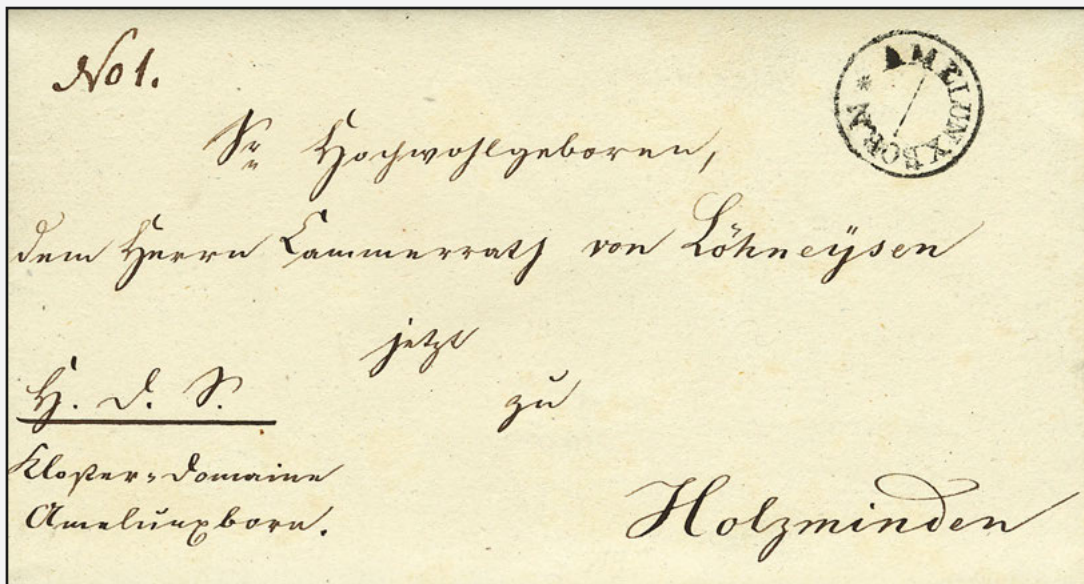 No 1.
AMELUNXBORN *
Sr Hochwohlgeboren,
dem Herrn Cammerrath von Löhneÿsen
jetzt
zu
H. d. S.
Kloster=Domaine
Amelunxborn.
Holzminden